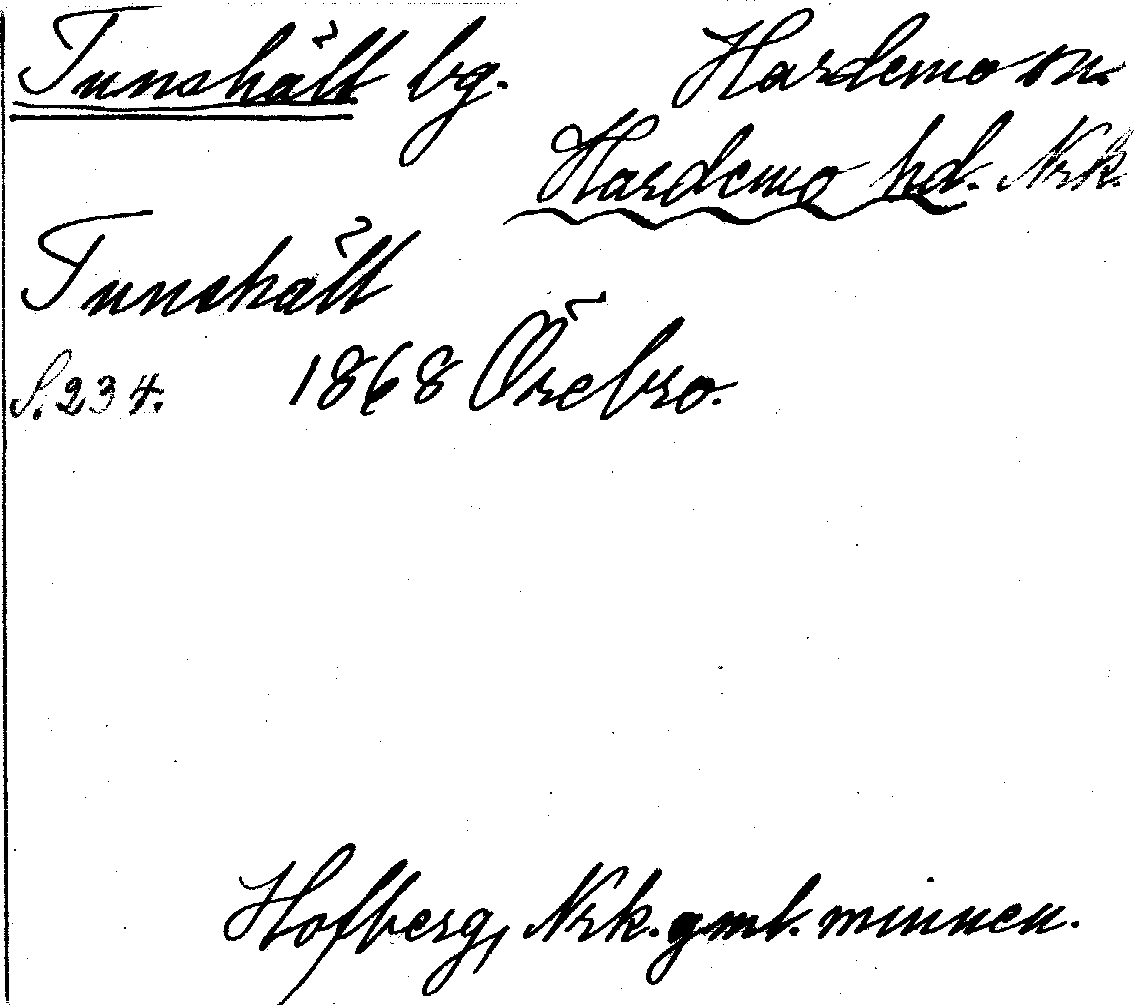 Tunshält bg. Hardemo sn.
Hardemo hd. Nrk.
Tunshält
S. 234. 1868 Örebro.
Hofberg, Nrk. gml. minnen.